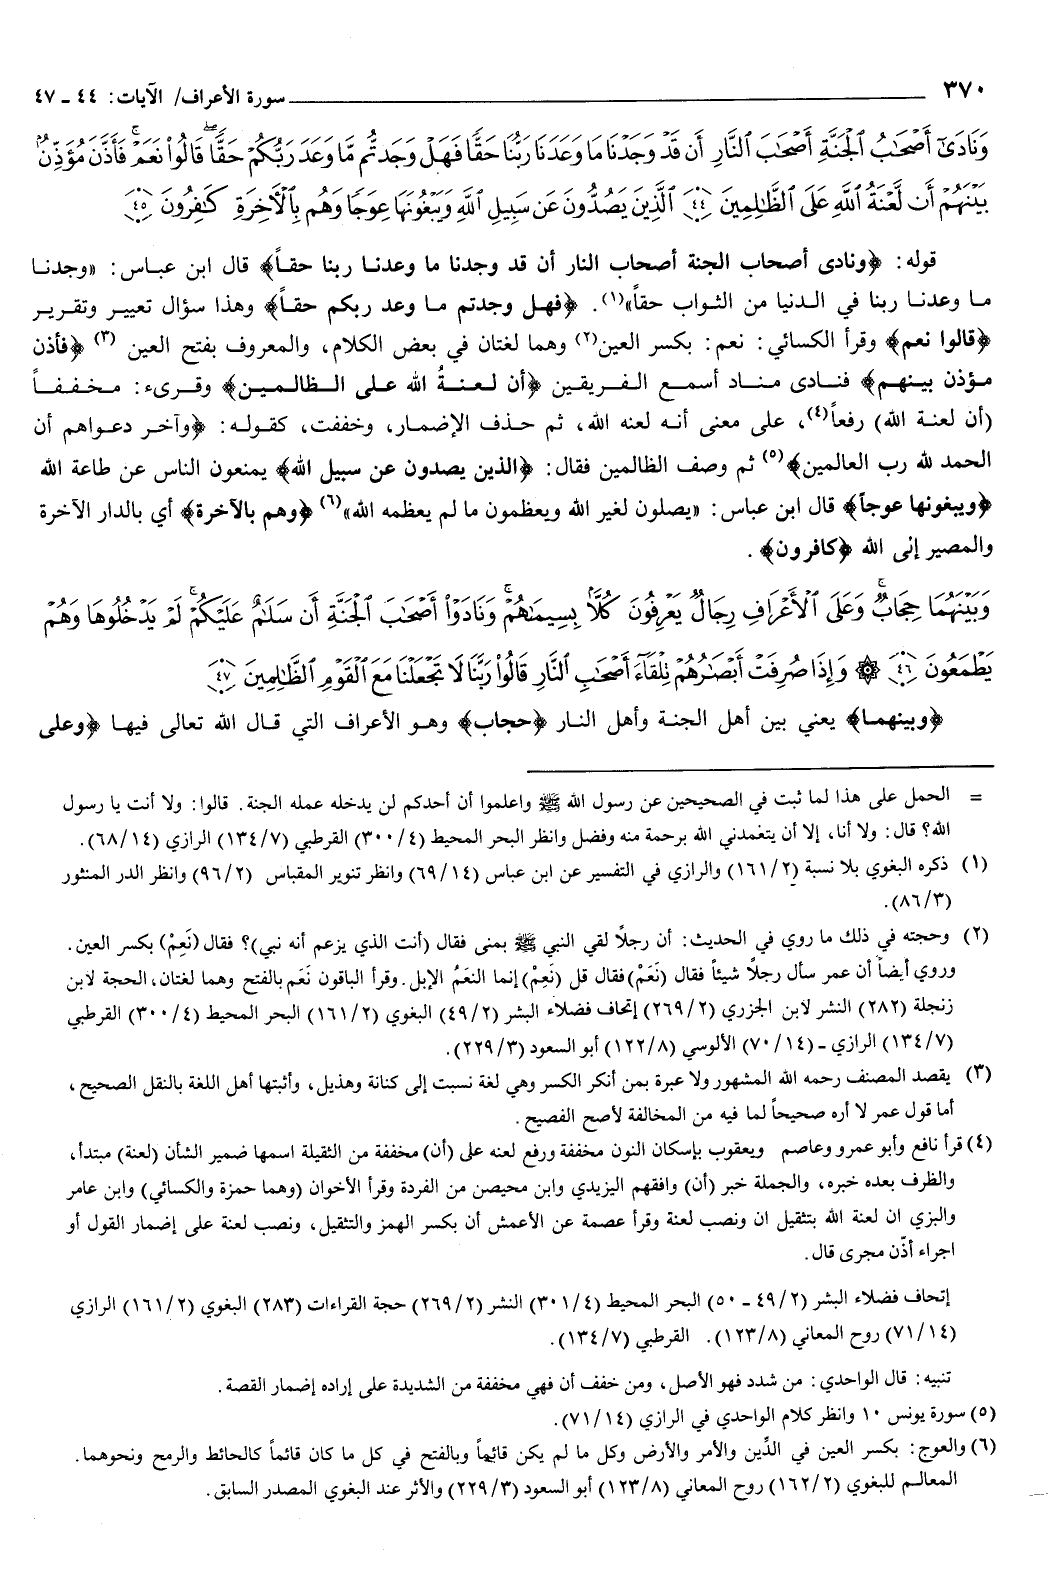 ٣٧٠ سورة الأعراف/ الآيات: ٤٤ ـ ٤٧
وَنَادَىٰٓ أَصْحَٰبُ ٱلْجَنَّةِ أَصْحَٰبَ ٱلنَّارِ أَن قَدْ وَجَدْنَا مَا وَعَدَنَا رَبُّنَا حَقًّا فَهَلْ وَجَدتُّم مَّا وَعَدَ رَبُّكُمْ حَقًّاۖ قَالُوا۟ نَعَمْۚ فَأَذَّنَ مُؤَذِّنٌۢ
بَيْنَهُمْ أَن لَّعْنَةُ ٱللَّهِ عَلَى ٱلظَّٰلِمِينَ ﴿٤٤﴾ ٱلَّذِينَ يَصُدُّونَ عَن سَبِيلِ ٱللَّهِ وَيَبْغُونَهَا عِوَجًا وَهُم بِٱلْءَاخِرَةِ كَٰفِرُونَ ﴿٤٥﴾
قوله: ﴿ونادى أصحاب الجنة أصحاب النار أن قد وجدنا ما وعدنا ربنا حقاً﴾ قال ابن عباس: «وجدنا
ما وعدنا ربنا في الدنيا من الثواب حقاً»(١). ﴿فهل وجدتم ما وعد ربكم حقاً﴾ وهذا سؤال تعيير وتقرير
﴿قالوا نعم﴾ وقرأ الكسائي: نعم: بكسر العين(٢) وهما لغتان في بعض الكلام، والمعروف بفتح العين (٣) ﴿فأذن
مؤذن بينهم﴾ فنادى مناد أسمع الفريقين ﴿أن لعنةُ الله على الظالمين﴾ وقرىء: مخففاً
(أن لعنة الله) رفعاً(٤)، على معنى أنه لعنه الله، ثم حذف الإضمار، وخففت، كقوله: ﴿وآخر دعواهم أن
الحمد لله رب العالمين﴾(٥) ثم وصف الظالمين فقال: ﴿الذين يصدون عن سبيل الله﴾ يمنعون الناس عن طاعة الله
﴿ويبغونها عوجاً﴾ قال ابن عباس: «يصلون لغير الله ويعظمون ما لم يعظمه الله»(٦) ﴿وهم بالآخرة﴾ أي بالدار الآخرة
والمصير إلى الله ﴿كافرون﴾.
وَبَيْنَهُمَا حِجَابٌۚ وَعَلَى ٱلْأَعْرَافِ رِجَالٌ يَعْرِفُونَ كُلًّۢا بِسِيمَىٰهُمْۚ وَنَادَوْا۟ أَصْحَٰبَ ٱلْجَنَّةِ أَن سَلَٰمٌ عَلَيْكُمْۚ لَمْ يَدْخُلُوهَا وَهُمْ
يَطْمَعُونَ ﴿٤٦﴾ ۞ وَإِذَا صُرِفَتْ أَبْصَٰرُهُمْ تِلْقَآءَ أَصْحَٰبِ ٱلنَّارِ قَالُوا۟ رَبَّنَا لَا تَجْعَلْنَا مَعَ ٱلْقَوْمِ ٱلظَّٰلِمِينَ ﴿٤٧﴾
﴿وبينهما﴾ يعني بين أهل الجنة وأهل النار ﴿حجاب﴾ وهو الأعراف التي قال الله تعالى فيها ﴿وعلى
= الحمل على هذا لما ثبت في الصحيحين عن رسول الله ﷺ واعلموا أن أحدكم لن يدخله عمله الجنة. قالوا: ولا أنت يا رسول
الله؟ قال: ولا أنا، إلا أن يتغمدني الله برحمة منه وفضل وانظر البحر المحيط (٣٠٠/٤) القرطبي (١٣٤/٧) الرازي (٦٨/١٤).
(١) ذكره البغوي بلا نسبة (١٦١/٢) والرازي في التفسير عن ابن عباس (٦٩/١٤) وانظر تنوير المقباس (٩٦/٢) وانظر الدر المنثور
(٨٦/٣).
(٢) وحجته في ذلك ما روي في الحديث: أن رجلاً لقي النبي ﷺ بمنى فقال (أنت الذي يزعم أنه نبي)؟ فقال (نَعِمْ) بكسر العين.
وروي أيضاً أن عمر سأل رجلاً شيئاً فقال (نَعَمْ) فقال قل (نَعِمْ) إنما النعَمُ الإبل. وقرأ الباقون نَعَم بالفتح وهما لغتان، الحجة لابن
زنجلة (٢٨٢) النشر لابن الجزري (٢٦٩/٢) إتحاف فضلاء البشر (٤٩/٢) البغوي (١٦١/٢) البحر المحيط (٣٠٠/٤) القرطبي
(١٣٤/٧) الرازي ـ (٧٠/١٤) الألوسي (١٢٢/٨) أبو السعود (٢٢٩/٣).
(٣) يقصد المصنف رحمه الله المشهور ولا عبرة بمن أنكر الكسر وهي لغة نسبت إلى كنانة وهذيل، وأثبتها أهل اللغة بالنقل الصحيح،
أما قول عمر لا أره صحيحاً لما فيه من المخالفة لأصح الفصيح.
(٤) قرأ نافع وأبو عمرو وعاصم ويعقوب بإسكان النون مخففة ورفع لعنه على (أن) مخففة من الثقيلة اسمها ضمير الشأن (لعنة) مبتدأ،
والظرف بعده خبره، والجملة خبر (أن) وافقهم اليزيدي وابن محيصن من الفردة وقرأ الأخوان (وهما حمزة والكسائي) وابن عامر
والبزي ان لعنة الله بتثقيل ان ونصب لعنة وقرأ عصمة عن الأعمش أن بكسر الهمز والتثقيل، ونصب لعنة على إضمار القول أو
اجراء أذّن مجرى قال.
إتحاف فضلاء البشر (٤٩/٢ - ٥٠) البحر المحيط (٣٠١/٤) النشر (٢٦٩/٢) حجة القراءات (٢٨٣) البغوي (١٦١/٢) الرازي
(٧١/١٤) روح المعاني (١٢٣/٨). القرطبي (١٣٤/٧).
تنبيه: قال الواحدي: من شدد فهو الأصل، ومن خفف أن فهي مخففة من الشديدة على إراده إضمار القصة.
(٥) سورة يونس ١٠ وانظر كلام الواحدي في الرازي (٧١/١٤).
(٦) والعوج: بكسر العين في الدِّين والأمر والأرض وكل ما لم يكن قائماً وبالفتح في كل ما كان قائماً كالحائط والرمح ونحوهما.
المعالم للبغوي (١٦٢/٢) روح المعاني (١٢٣/٨) أبو السعود (٢٢٩/٣) والأثر عند البغوي المصدر السابق.